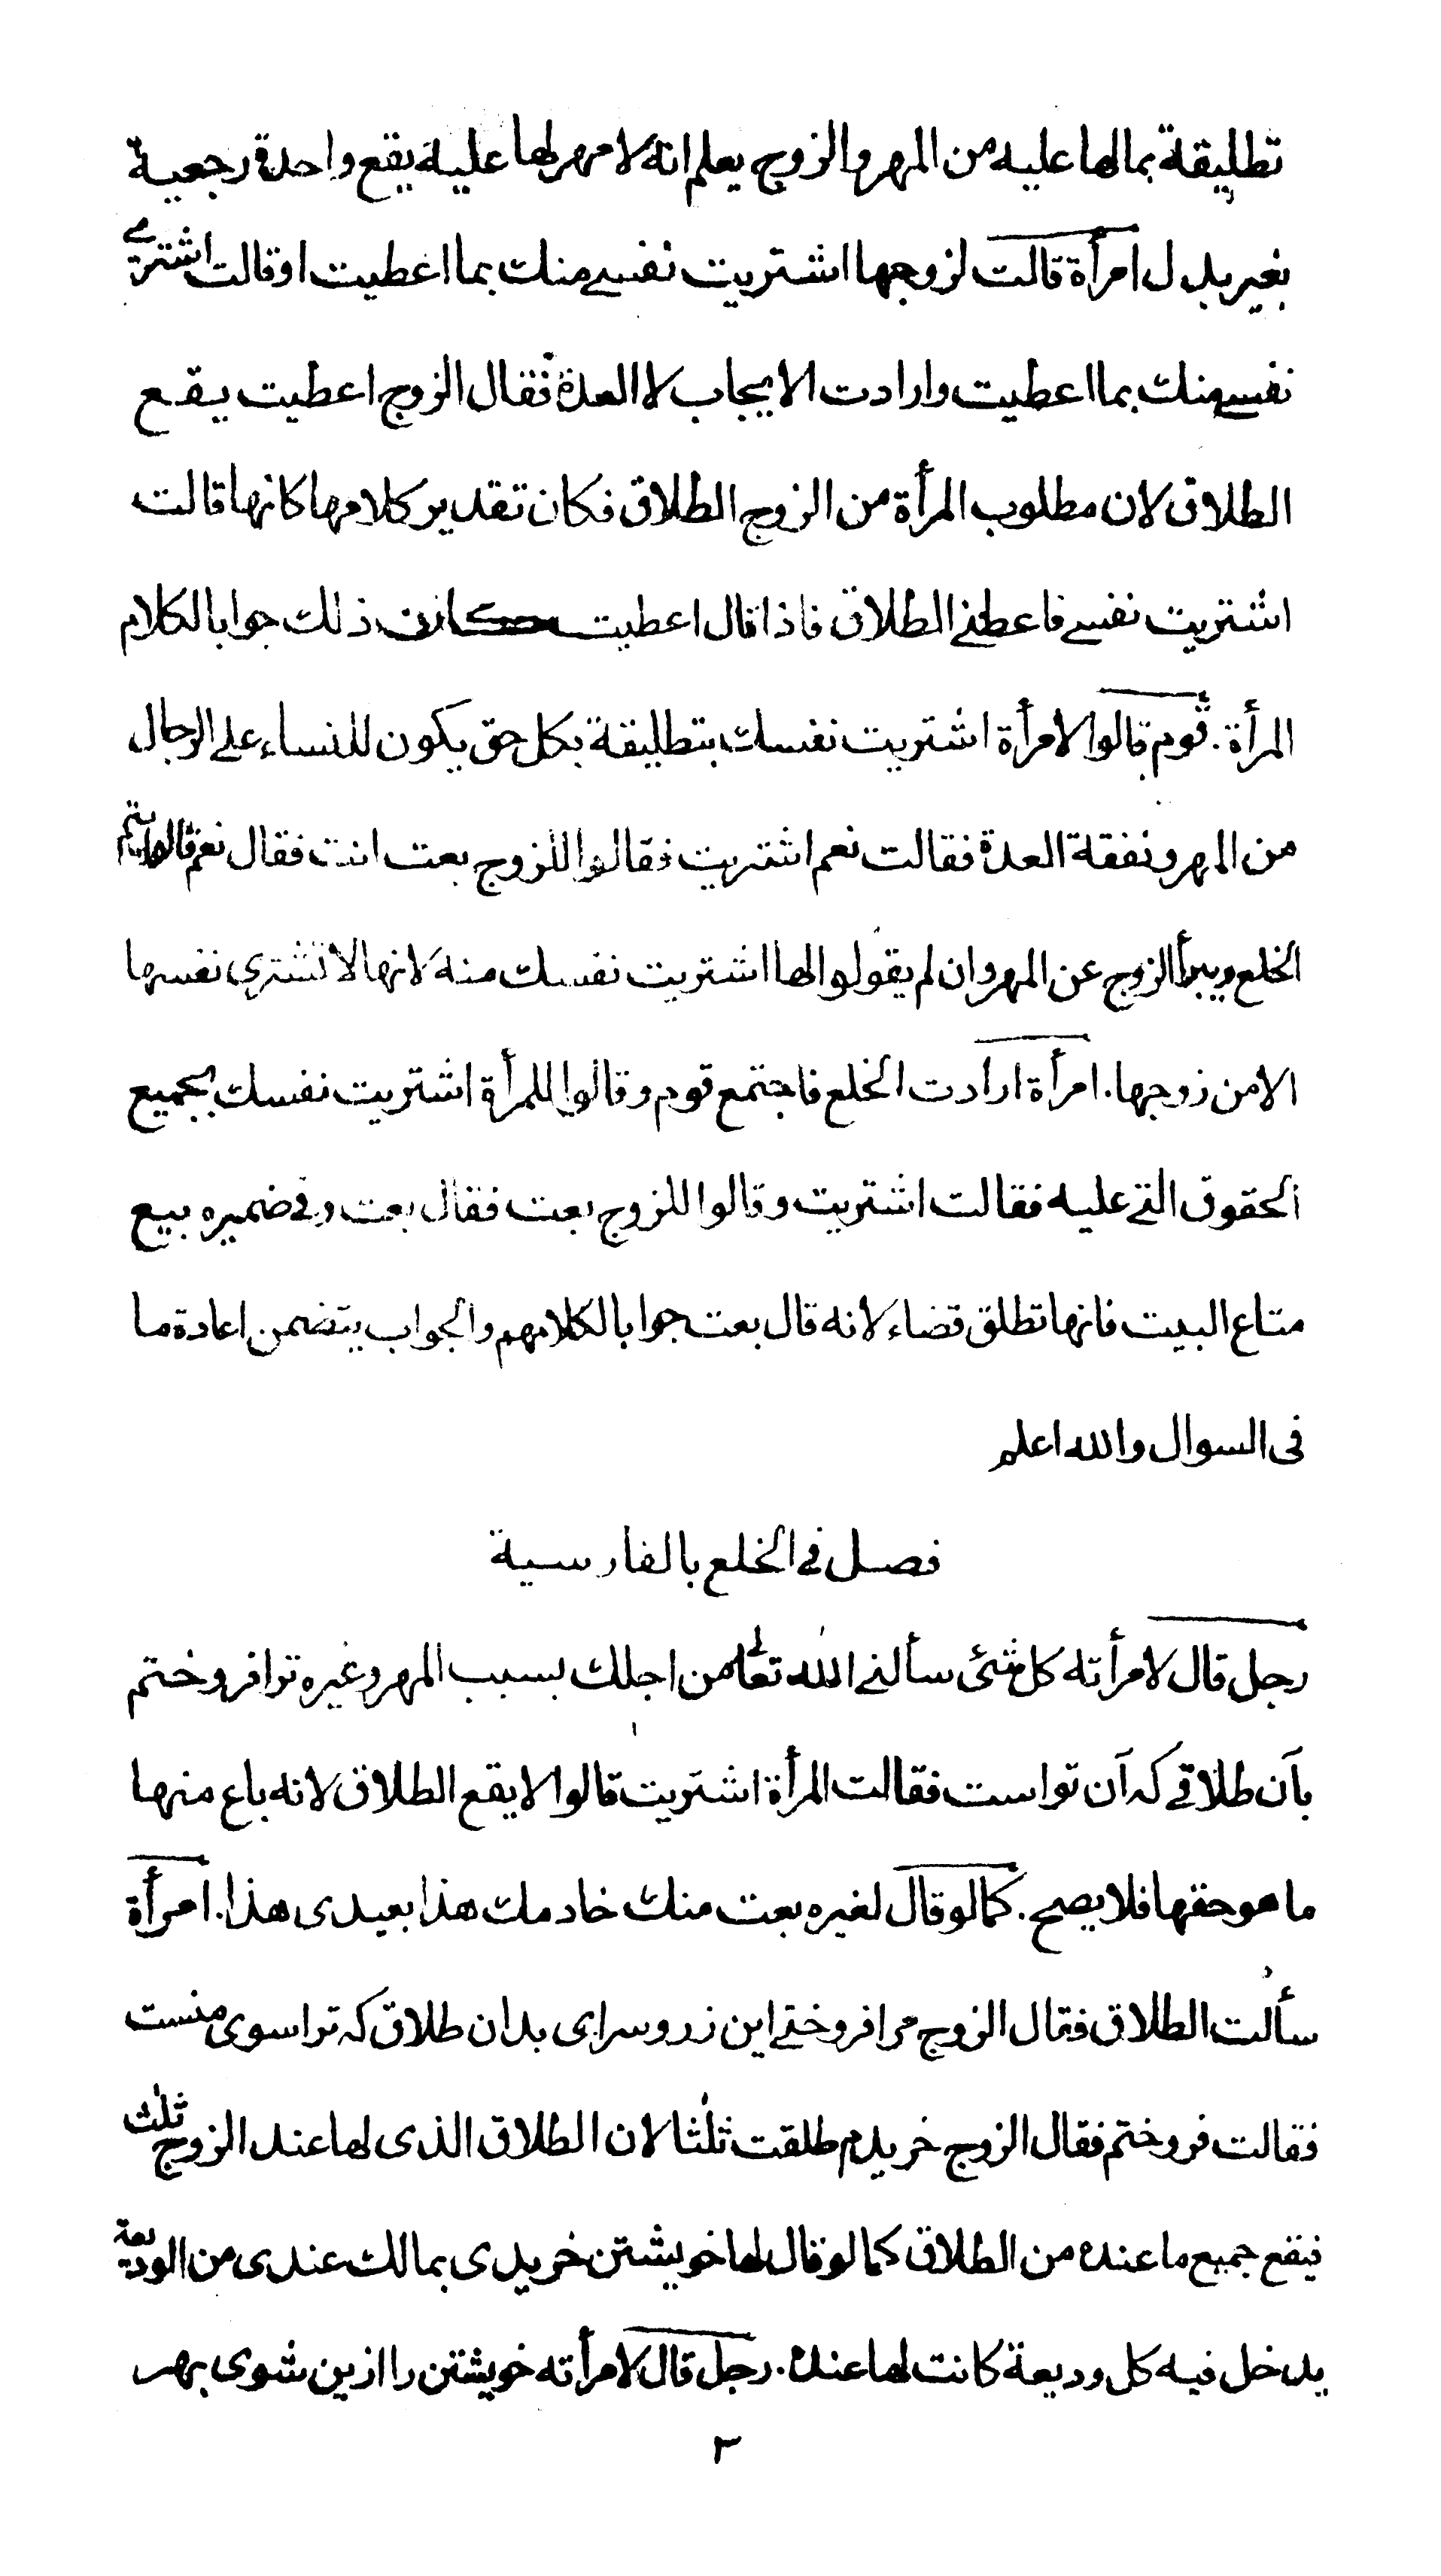 تطليقة بمالها عليه من المهر والزوج يعلم انه لا مهر لها عليه يقع واحدة رجعية
بغير بدل امرأة قالت لزوجها اشتريت نفسي منك بما اعطيت او قالت اشتري
نفسي منك بما اعطيت وارادت الايجاب لا العدة فقال الزوج اعطيت يقع
الطلاق لان مطلوب المرأة من الزوج الطلاق فكان تقدير كلامها كانها قالت
اشتريت نفسي فاعطني الطلاق فاذا قال اعطيت كان ذلك جوابا لكلام
المرأة. قوم قالوا لامرأة اشتريت نفسك بتطليقة بكل حق يكون للنساء على الرجال
من المهر ونفقة العدة فقالت نعم اشتريت فقالوا للزوج بعت انت فقال نعم قالوا يتم
الخلع ويبرأ الزوج عن المهر وان لم يقولوا لها اشتريت نفسك منه لانها لا تشترى نفسها
الا من زوجها. امرأة ارادت الخلع فاجتمع قوم وقالوا للمرأة اشتريت نفسك بجميع
الحقوق التي عليه فقالت اشتريت وقالوا للزوج بعت فقال بعت وفي ضميره بيع
متاع البيت فانها تطلق قضاء لانه قال بعت جوابا لكلامهم والجواب يتضمن اعادة ما
فى السوال والله اعلم
فصل في الخلع بالفارسية
رجل قال لامرأته كل شئ سألني الله تعالى من اجلك بسبب المهر وغيره ترا فروختم
بآن طلاقي كه آن تواست فقالت المرأة اشتريت قالوا لا يقع الطلاق لانه باع منها
ما هو حقها فلا يصح. كما لو قال لغيره بعت منك خادمك هذا بعبدى هذا. امرأة
سألت الطلاق فقال الزوج مرا فروختي اين زر وسراى بدان طلاق كه ترا سوى منست
فقالت فروختم فقال الزوج خريدم طلقت ثلثا لان الطلاق الذى لها عند الزوج ثلث
فيقع جميع ما عنده من الطلاق كما لو قال لها خويشتن خريدى بمالك عندى من الوديعة
يدخل فيه كل وديعة كانت لها عنده. رجل قال لامرأته خويشتن را ازين شوى بهر
٣